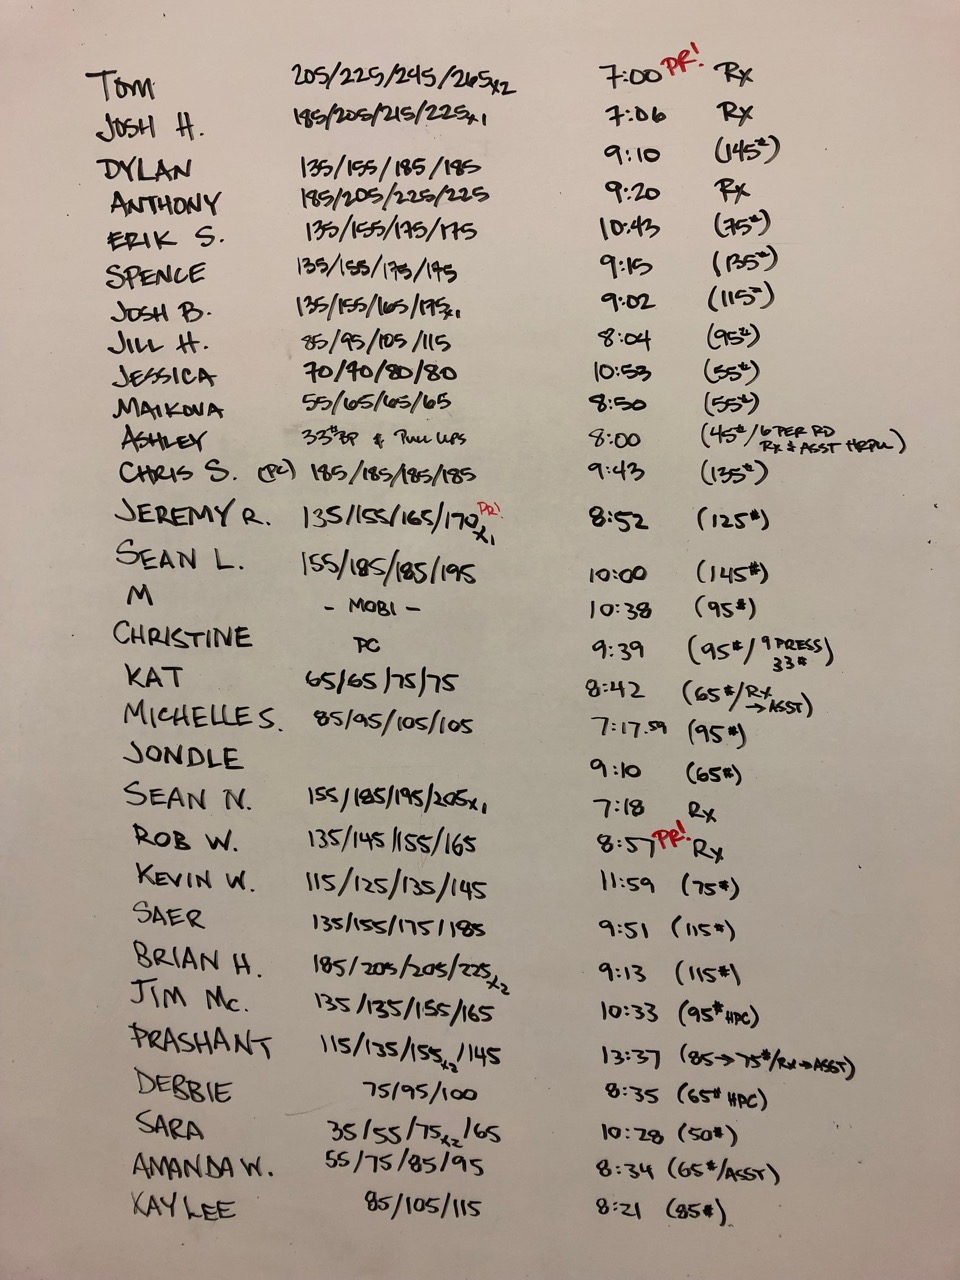 TOM 205/225/245/265x2 7:00 PR! Rx
JOSH H. 185/205/215/225x1 7:06 Rx
DYLAN 135/155/185/185 9:10 (145#)
ANTHONY 185/205/225/225 9:20 Rx
ERIK S. 135/155/175/175 10:43 (75#)
SPENCE 135/155/175/175 9:15 (135#)
JOSH B. 135/155/165/175x1 9:02 (115#)
JILL H. 85/95/105/115 8:04 (95#)
JESSICA 70/90/80/80 10:53 (55#)
MAIKOVA 55/65/65/65 8:50 (55#)
ASHLEY 33#BP & PULL UPS 8:00 (45#/6 PER RD
Rx & ASST HRPU)
CHRIS S. (PC) 185/185/185/185 9:43 (135#)
JEREMY R. 135/155/165/170x1 PR! 8:52 (125#)
SEAN L. 155/185/185/195 10:00 (145#)
M - MOBI - 10:38 (95#)
CHRISTINE PC 9:39 (95#/9 PRESS
33#)
KAT 65/65/75/75 8:42 (65#/Rx
→ASST)
MICHELLE S. 85/95/105/105 7:17.59 (95#)
JONDLE 9:10 (65#)
SEAN N. 155/185/195/205x1 7:18 Rx
ROB W. 135/145/155/165 8:57 PR! Rx
KEVIN W. 115/125/135/145 11:59 (75#)
SAER 135/155/175/185 9:51 (115#)
BRIAN H. 185/205/205/225x2 9:13 (115#)
JIM Mc. 135/135/155/165 10:33 (95# HPC)
PRASHANT 115/135/155x2/145 13:37 (85→75#/Rx→ASST)
DEBBIE 75/95/100 8:35 (65# HPC)
SARA 35/55/75x2/65 10:28 (50#)
AMANDA W. 55/75/85/95 8:34 (65#/ASST)
KAYLEE 85/105/115 8:21 (85#)